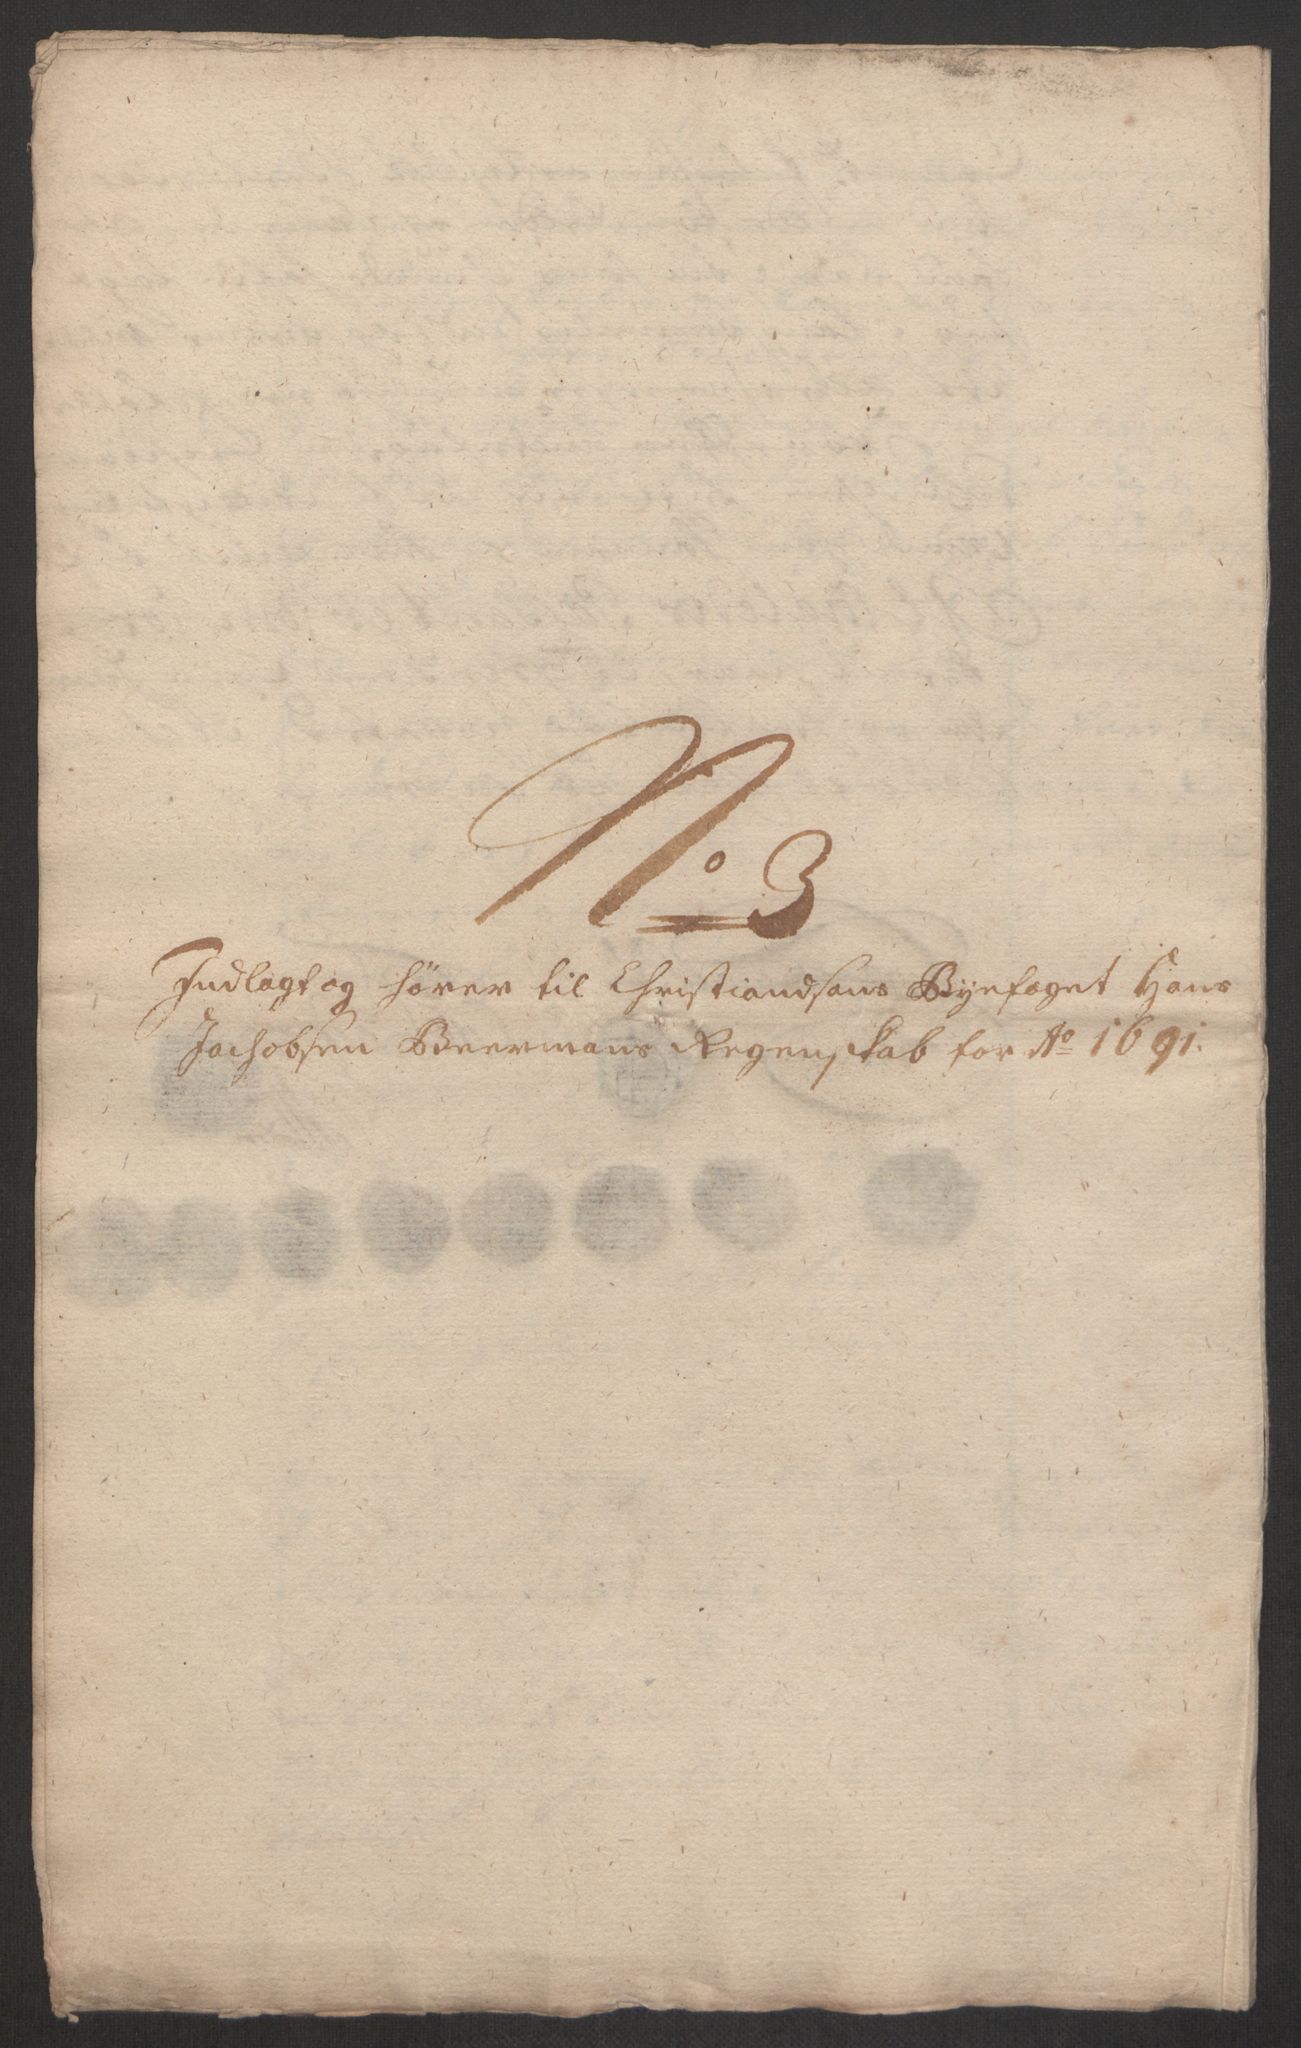 No 3
Indlagt og hörer til Christiandsans Byefoget Hans
Jachobsen Beermans Regenskab for Ao 1691.